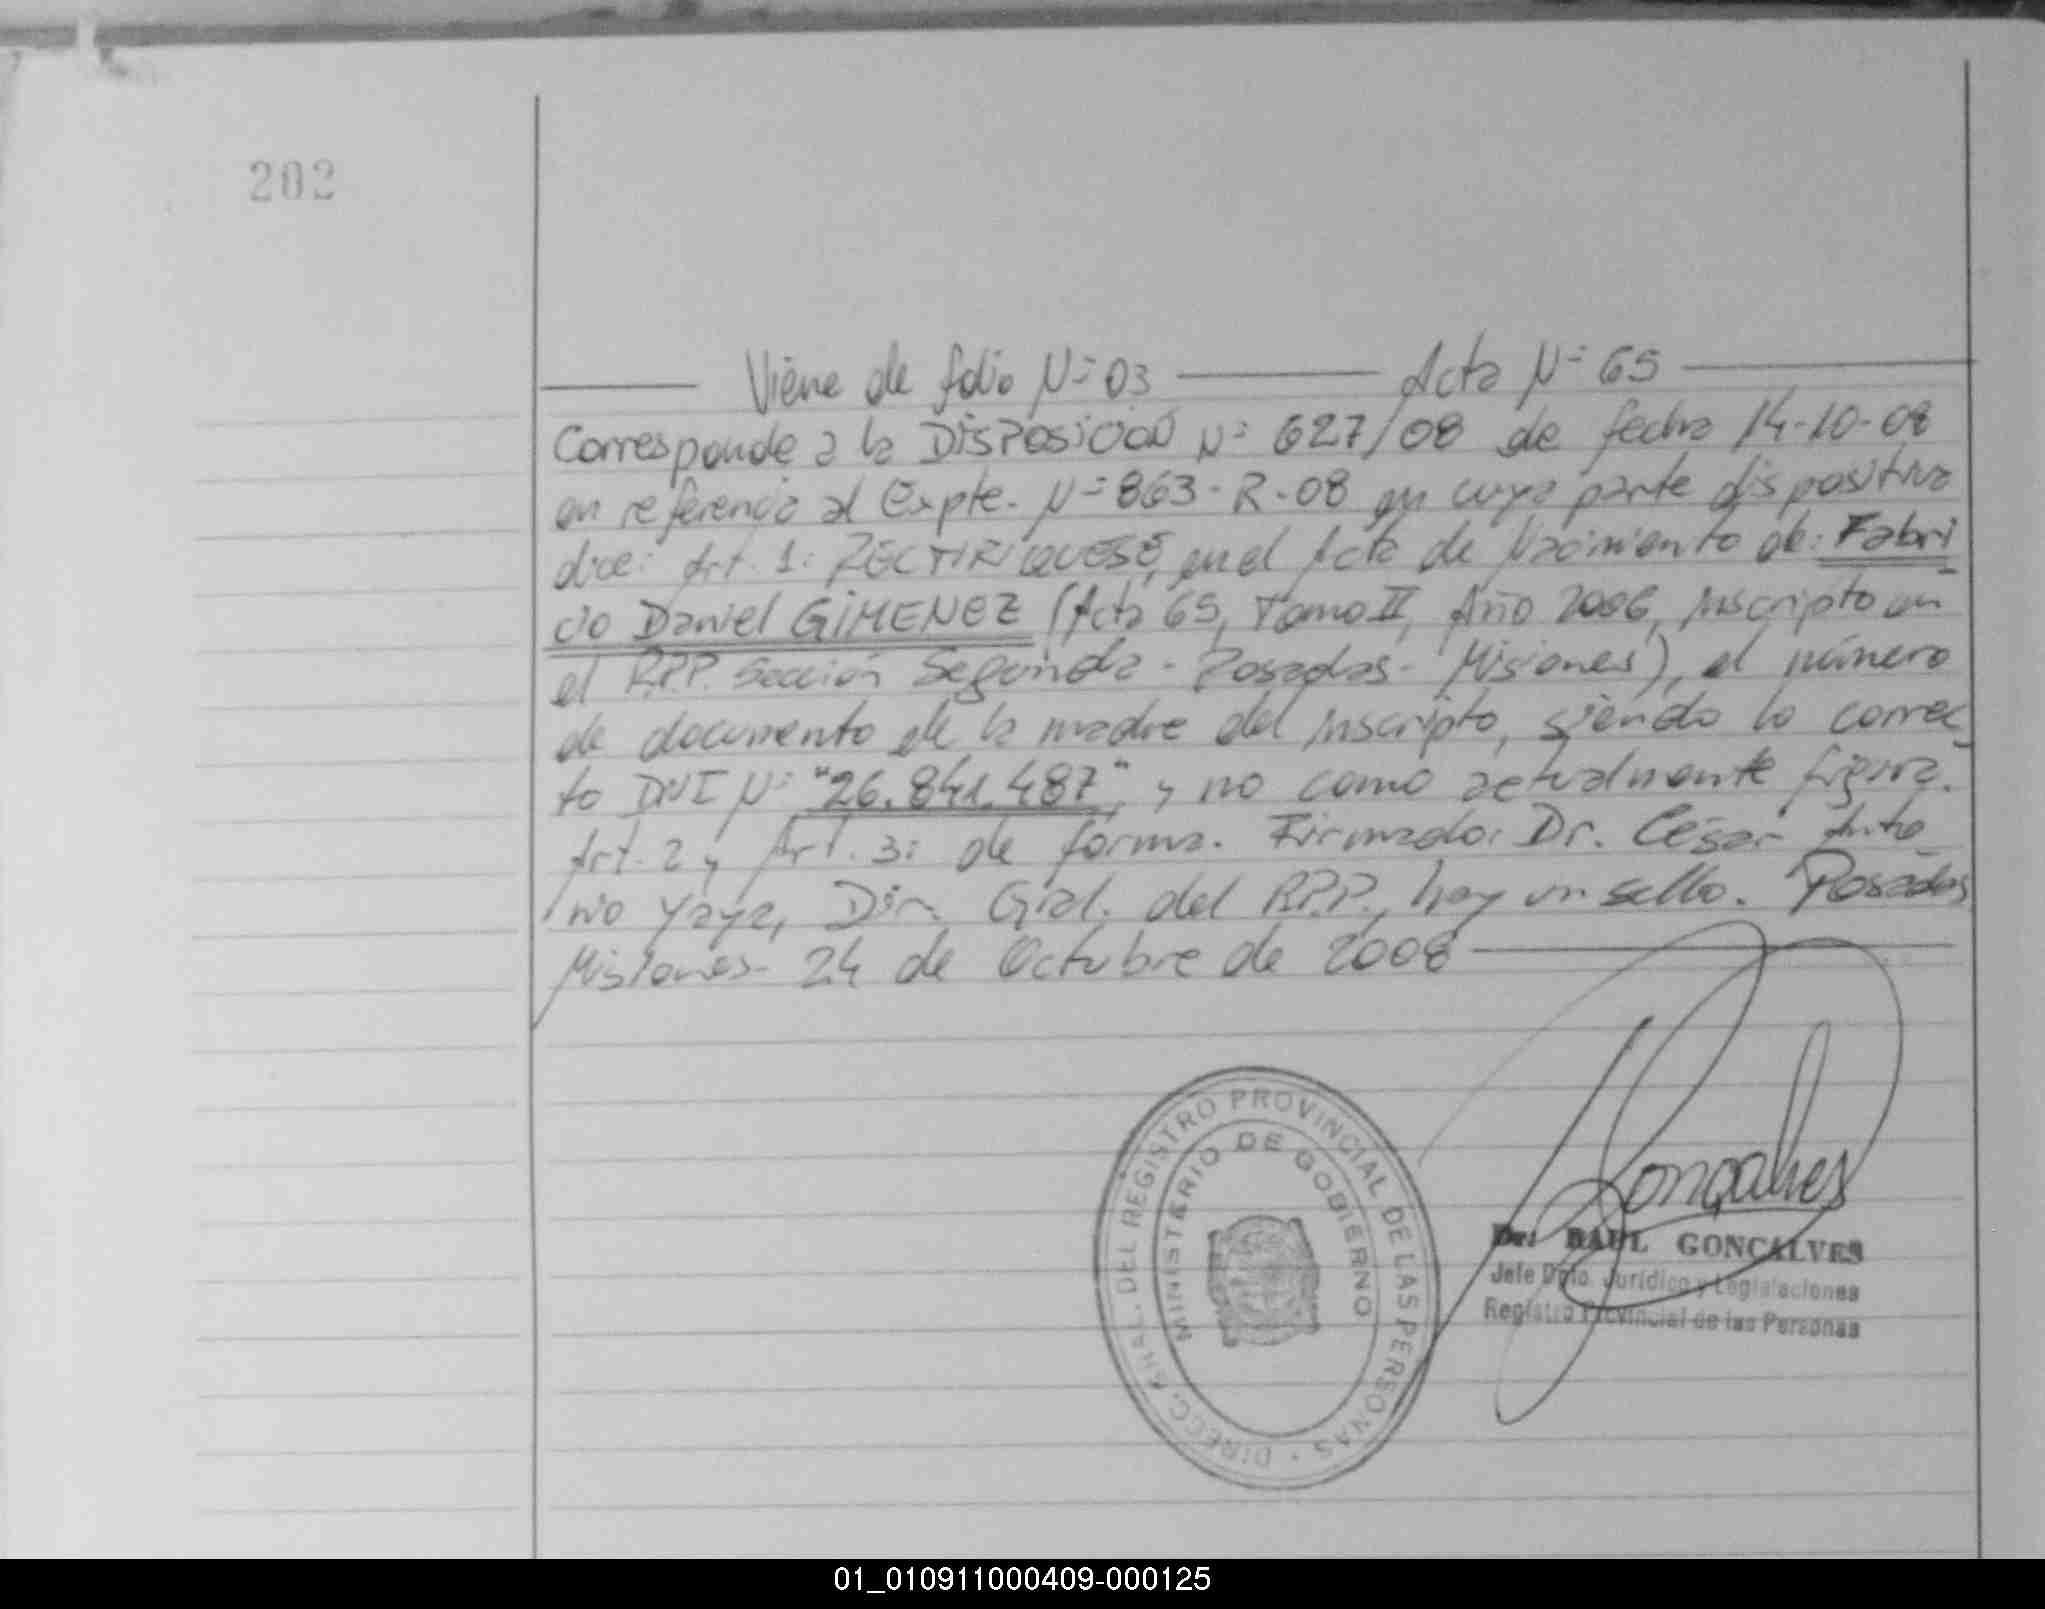 202
Viene de folio Nº 03 Acta Nº 65
Corresponde a la DISPOSICION Nº 627/08 de fecha 14-10-08
en referencia al Expte. Nº 863-R-08 en cuya parte dispositiva
dice: Art. 1: RECTIFIQUESE, en el Acta de Nacimiento de: Fabri
cio Daniel GIMENEZ (Acta 65, Tomo II, Año 2006, inscripto en
el R.P.P. Sección Segunda - Posadas - Misiones), el número
de documento de la madre del inscripto, siendo lo correc
to DNI Nº "26.841.487", y no como actualmente figura.
Art. 2 y Art. 3: de forma. Firmado: Dr. César Anto
nio Yaya, Dir. Gral. del R.P.P., hay un sello. Posadas
Misiones - 24 de Octubre de 2008
DIREC. GRAL. DEL REGISTRO PROVINCIAL DE LAS PERSONAS
MINISTERIO DE GOBIERNO
Gonçalves
Dr. RAUL GONCALVES
Jefe Dpto. Jurídico y Legislaciones
Registro Provincial de las Personas
01_010911000409-000125